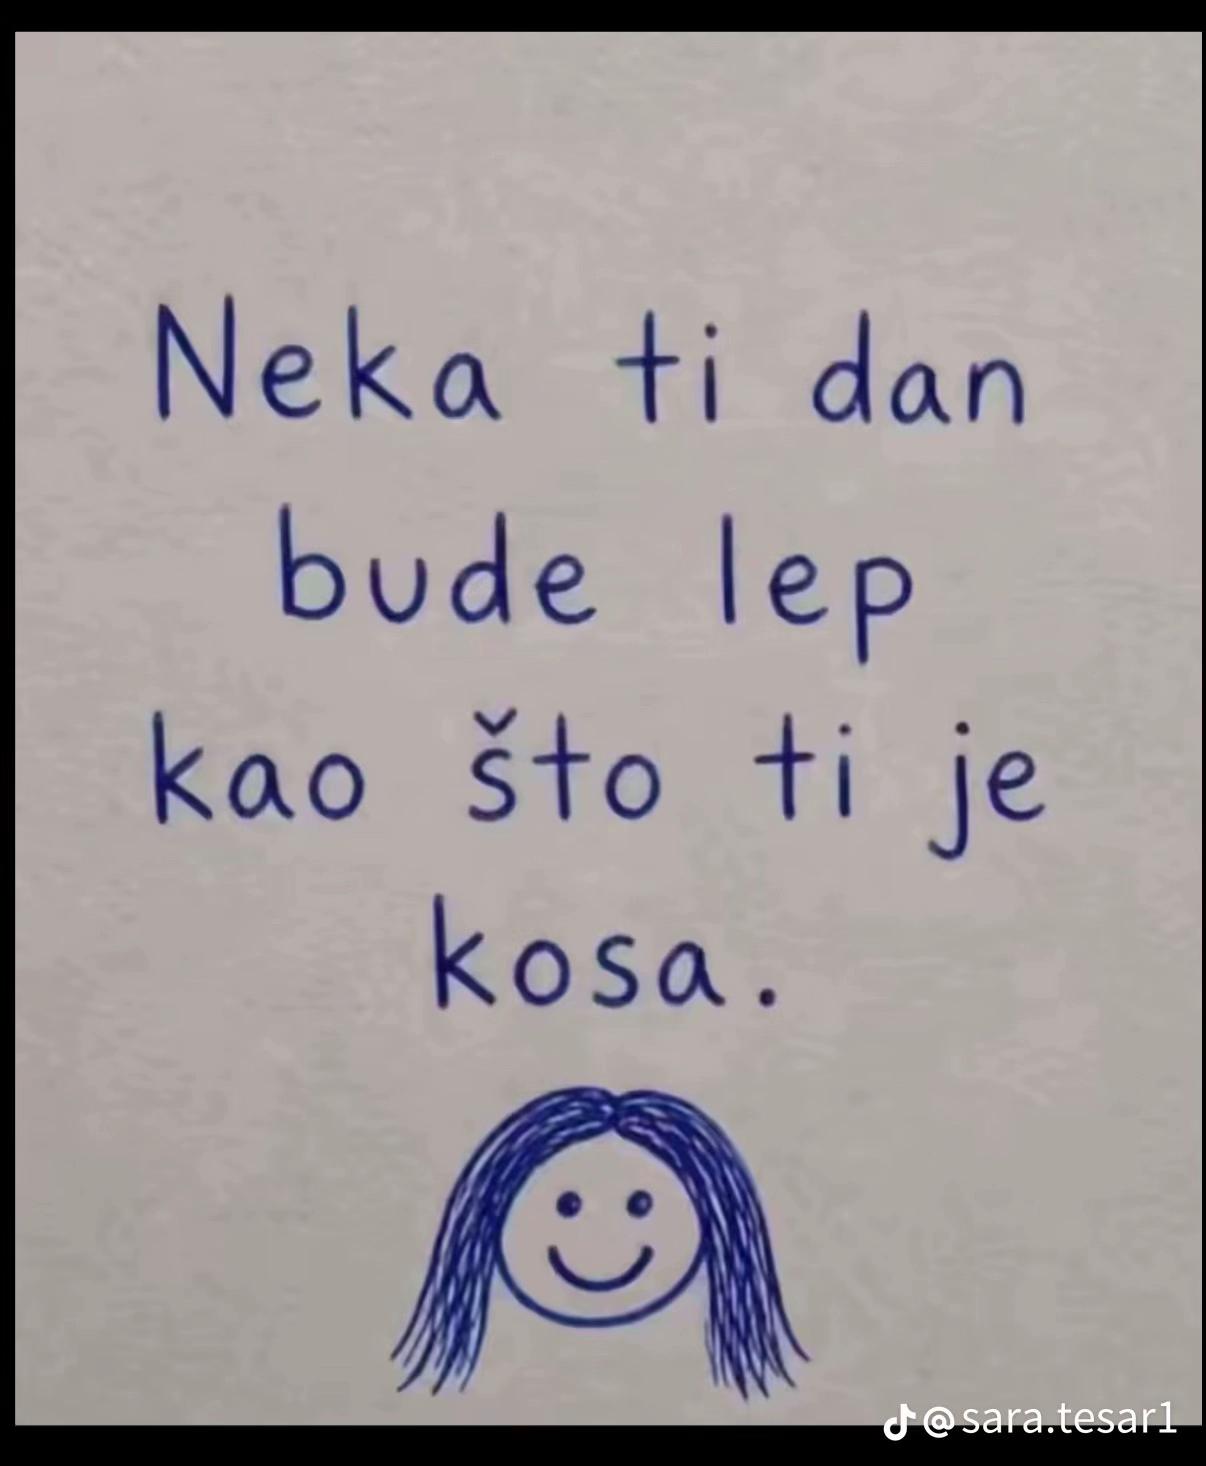 Neka ti dan
bude lep
kao što ti je
kosa.
@sara.tesar1